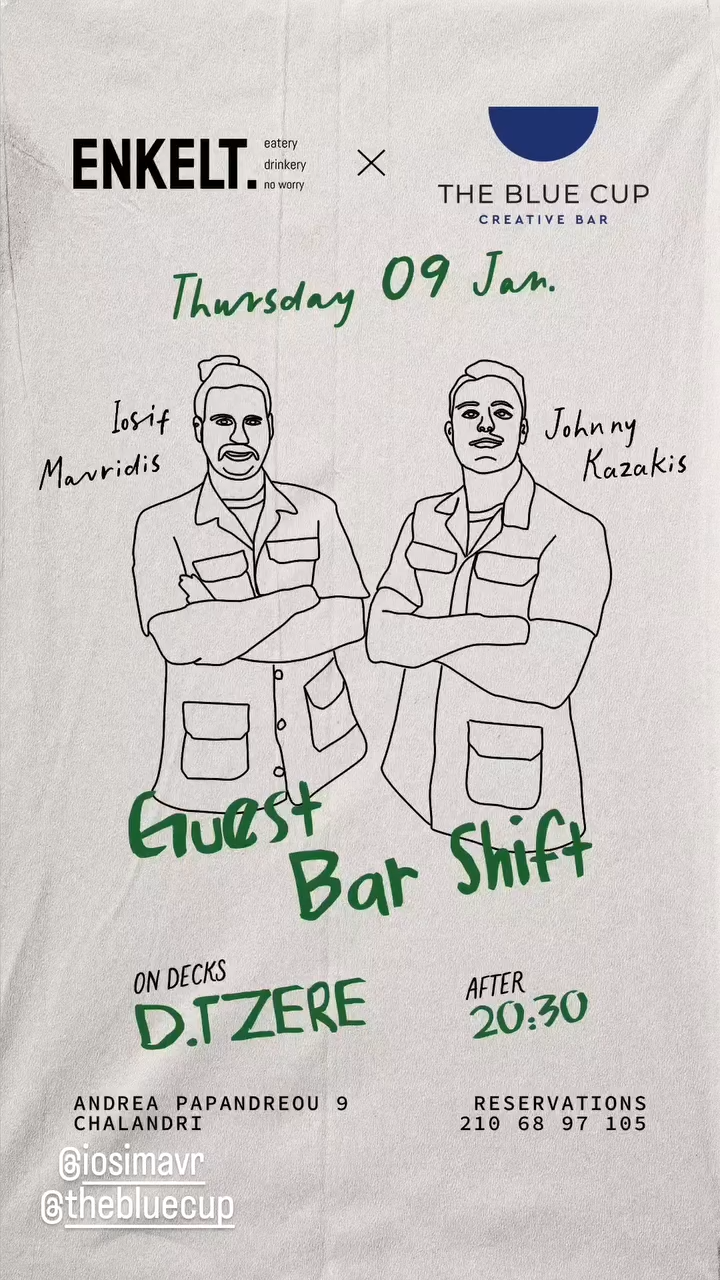 ENKELT.
eatery
drinkery
no worry
THE BLUE CUP
CREATIVE BAR
Thursday 09 Jan.
Iosif
Mavridis
Johnny
Kazakis
Guest
Bar Shift
ON DECKS
D.TZERE
AFTER
20:30
ANDREA PAPANDREOU 9
CHALANDRI
RESERVATIONS
210 68 97 105
@iosimavr
@thebluecup